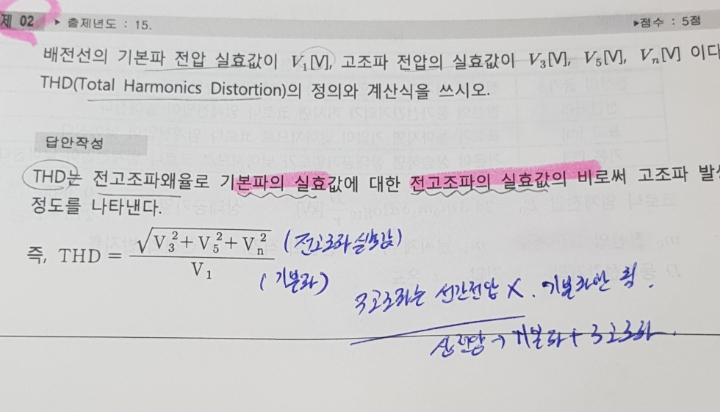 제 02 ▸ 출제년도 : 15. ▸점수 : 5점
배전선의 기본파 전압 실효값이 V₁[V], 고조파 전압의 실효값이 V₃[V], V₅[V], Vₙ[V] 이다
THD(Total Harmonics Distortion)의 정의와 계산식을 쓰시오.
답안작성
THD는 전고조파왜율로 기본파의 실효값에 대한 전고조파의 실효값의 비로써 고조파 발생
정도를 나타낸다.
즉, THD = √(V₃² + V₅² + Vₙ²) / V₁ (전고조파 실효값)
(기본파)
3고조파는 선간전압 X. 기본파만
→ 기본파 + 3고조파.